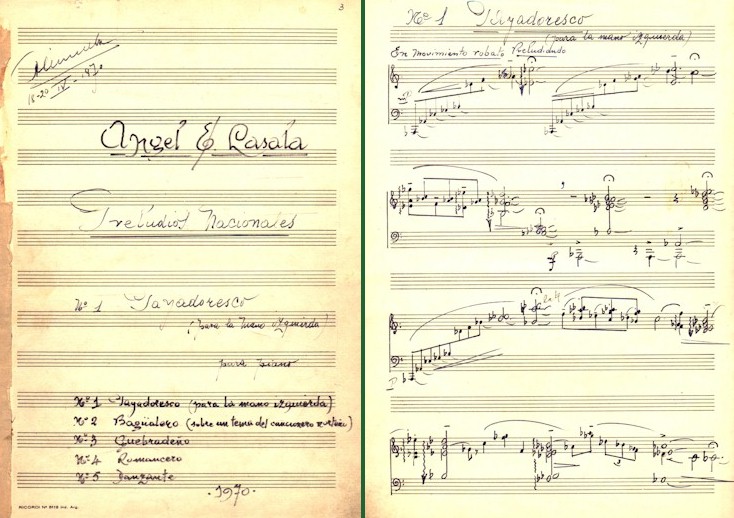 3
18-20 IV-1970
Angel E. Lasala
Preludios Nacionales
Nº 1 Payadoresco
(para la mano izquierda)
para piano
Nº 1 Payadoresco (para la mano izquierda)
Nº 2 Bagualero (sobre un tema del cancionero
Nº 3 Quebradeño
Nº 4 Romancero
Nº 5 Danzante
.1970.
RICORDI Nº 
Ind. Arg.
Nº 1 Payadoresco
(para la mano izquierda)
En movimiento robato Preludiando